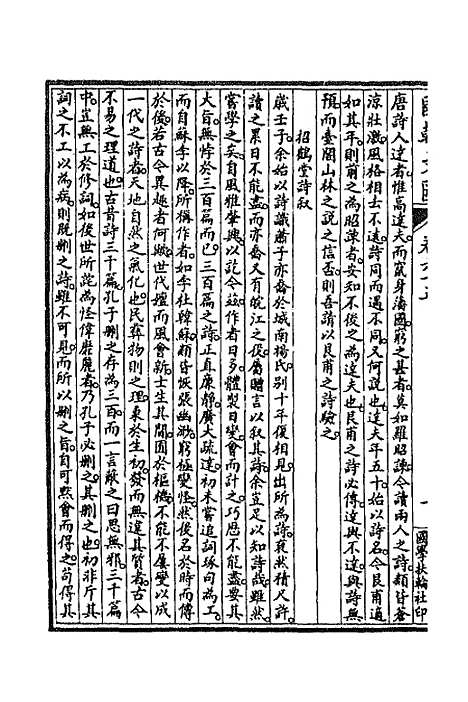 國朝文匯 卷六十七 一 國學扶輪社印
唐詩人達者惟高達夫而窮身潘國窮之甚者莫如羅昭諫今讀兩人之詩類皆蒼
涼壯激風格相去不遠詩同而遇不同又何說也達夫年五十始以詩名今艮甫適
如其年則前之為昭諫者安知不後之為達夫也艮甫之詩必傳達與不達與詩無
預而臺閣山林之說之信否則吾請以艮甫之詩驗之
招鶴堂詩敘
歲壬子余始以詩識蕭子亦喬於城南楊氏別十年復相見出所為詩裒然積尺許
讀之累日不能盡而亦喬又有皖江之役屬贈言以敘其詩余豈足以知詩哉雖然
嘗學之矣自風雅肇興以訖今茲作者日多體製日變會而計之巧歷不能盡要其
大旨無悖於三百篇而已三百篇之詩正直康靜廣大疏達初未嘗追詞琢句為工
而自蘇李以降所稱作者如李杜韓蘇類皆恢張幽渺窮極變怪然後名於時而傳
於後若古今異趣者何與世代嬗而風會新士生其間囿於樞機不能不屢變以成
一代之詩者天地自然之氣化也民彝物則之理秉於生初發而無違其質者古今
不易之理道也古昔詩三千篇孔子刪之存為三百而一言蔽之曰思無邪三千篇
中豈無工於修詞如後世所詫為怪偉磨麗者乃孔子必刪之其刪之也初非斤其
詞之不工以為病則既刪之詩雖不可見而所以刪之旨自可默會而得之苟得其